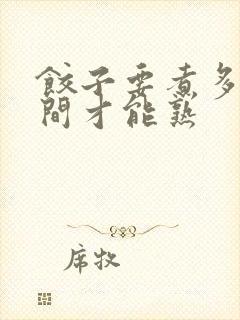 餃子要煮多
間才能熟
席牧